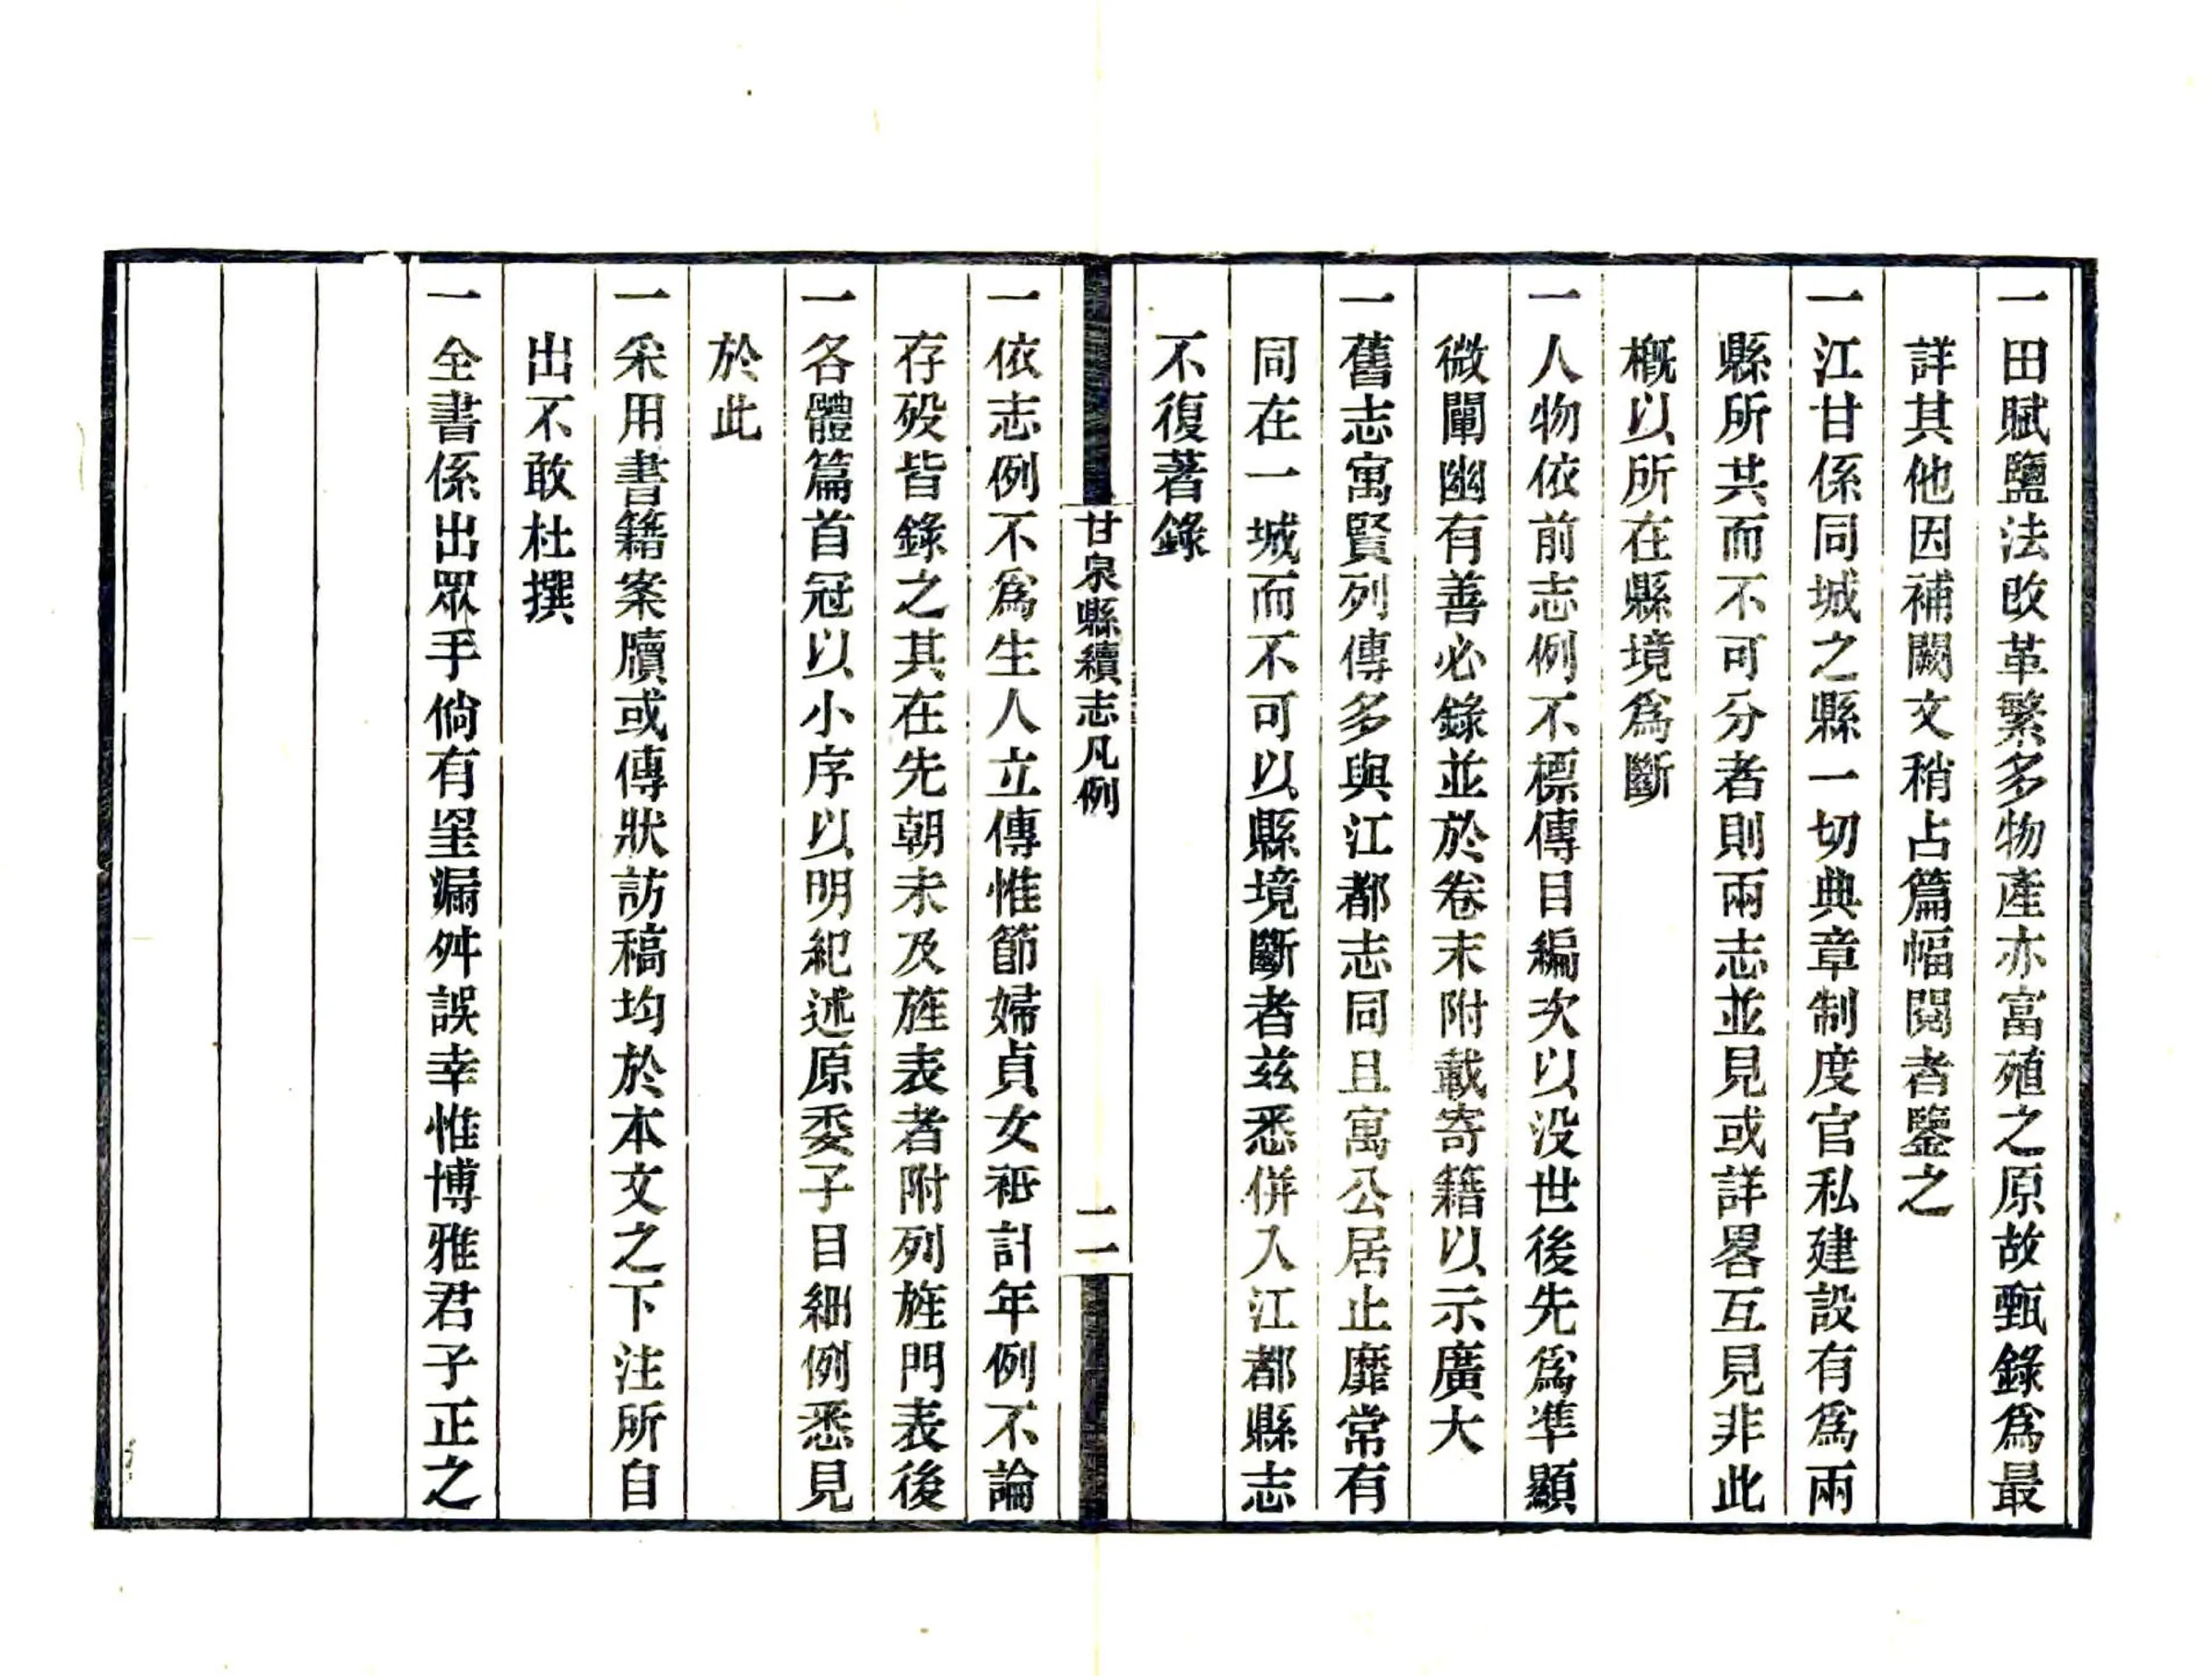 一田賦鹽法改革繁多物產亦富殖之原故甄錄爲最
詳其他因補闕文稍占篇幅閱者鑒之
一江甘係同城之縣一切典章制度官私建設有爲兩
縣所共而不可分者則兩志並見或詳畧互見非此
概以所在縣境爲斷
一人物依前志例不標傳目編次以没世後先爲準顯
微闡幽有善必錄並於卷末附載寄籍以示廣大
一舊志寓賢列傳多與江都志同且寓公居止靡常有
同在一城而不可以縣境斷者兹悉併入江都縣志
不復著錄
甘泉縣續志凡例
二
一依志例不爲生人立傳惟節婦貞女祗計年例不論
存殁皆錄之其在先朝未及旌表者附列旌門表後
一各體篇首冠以小序以明紀述原委子目細例悉見
於此
一采用書籍案牘或傳狀訪稿均於本文之下注所自
出不敢杜撰
一全書係出眾手倘有罣漏舛誤幸惟博雅君子正之